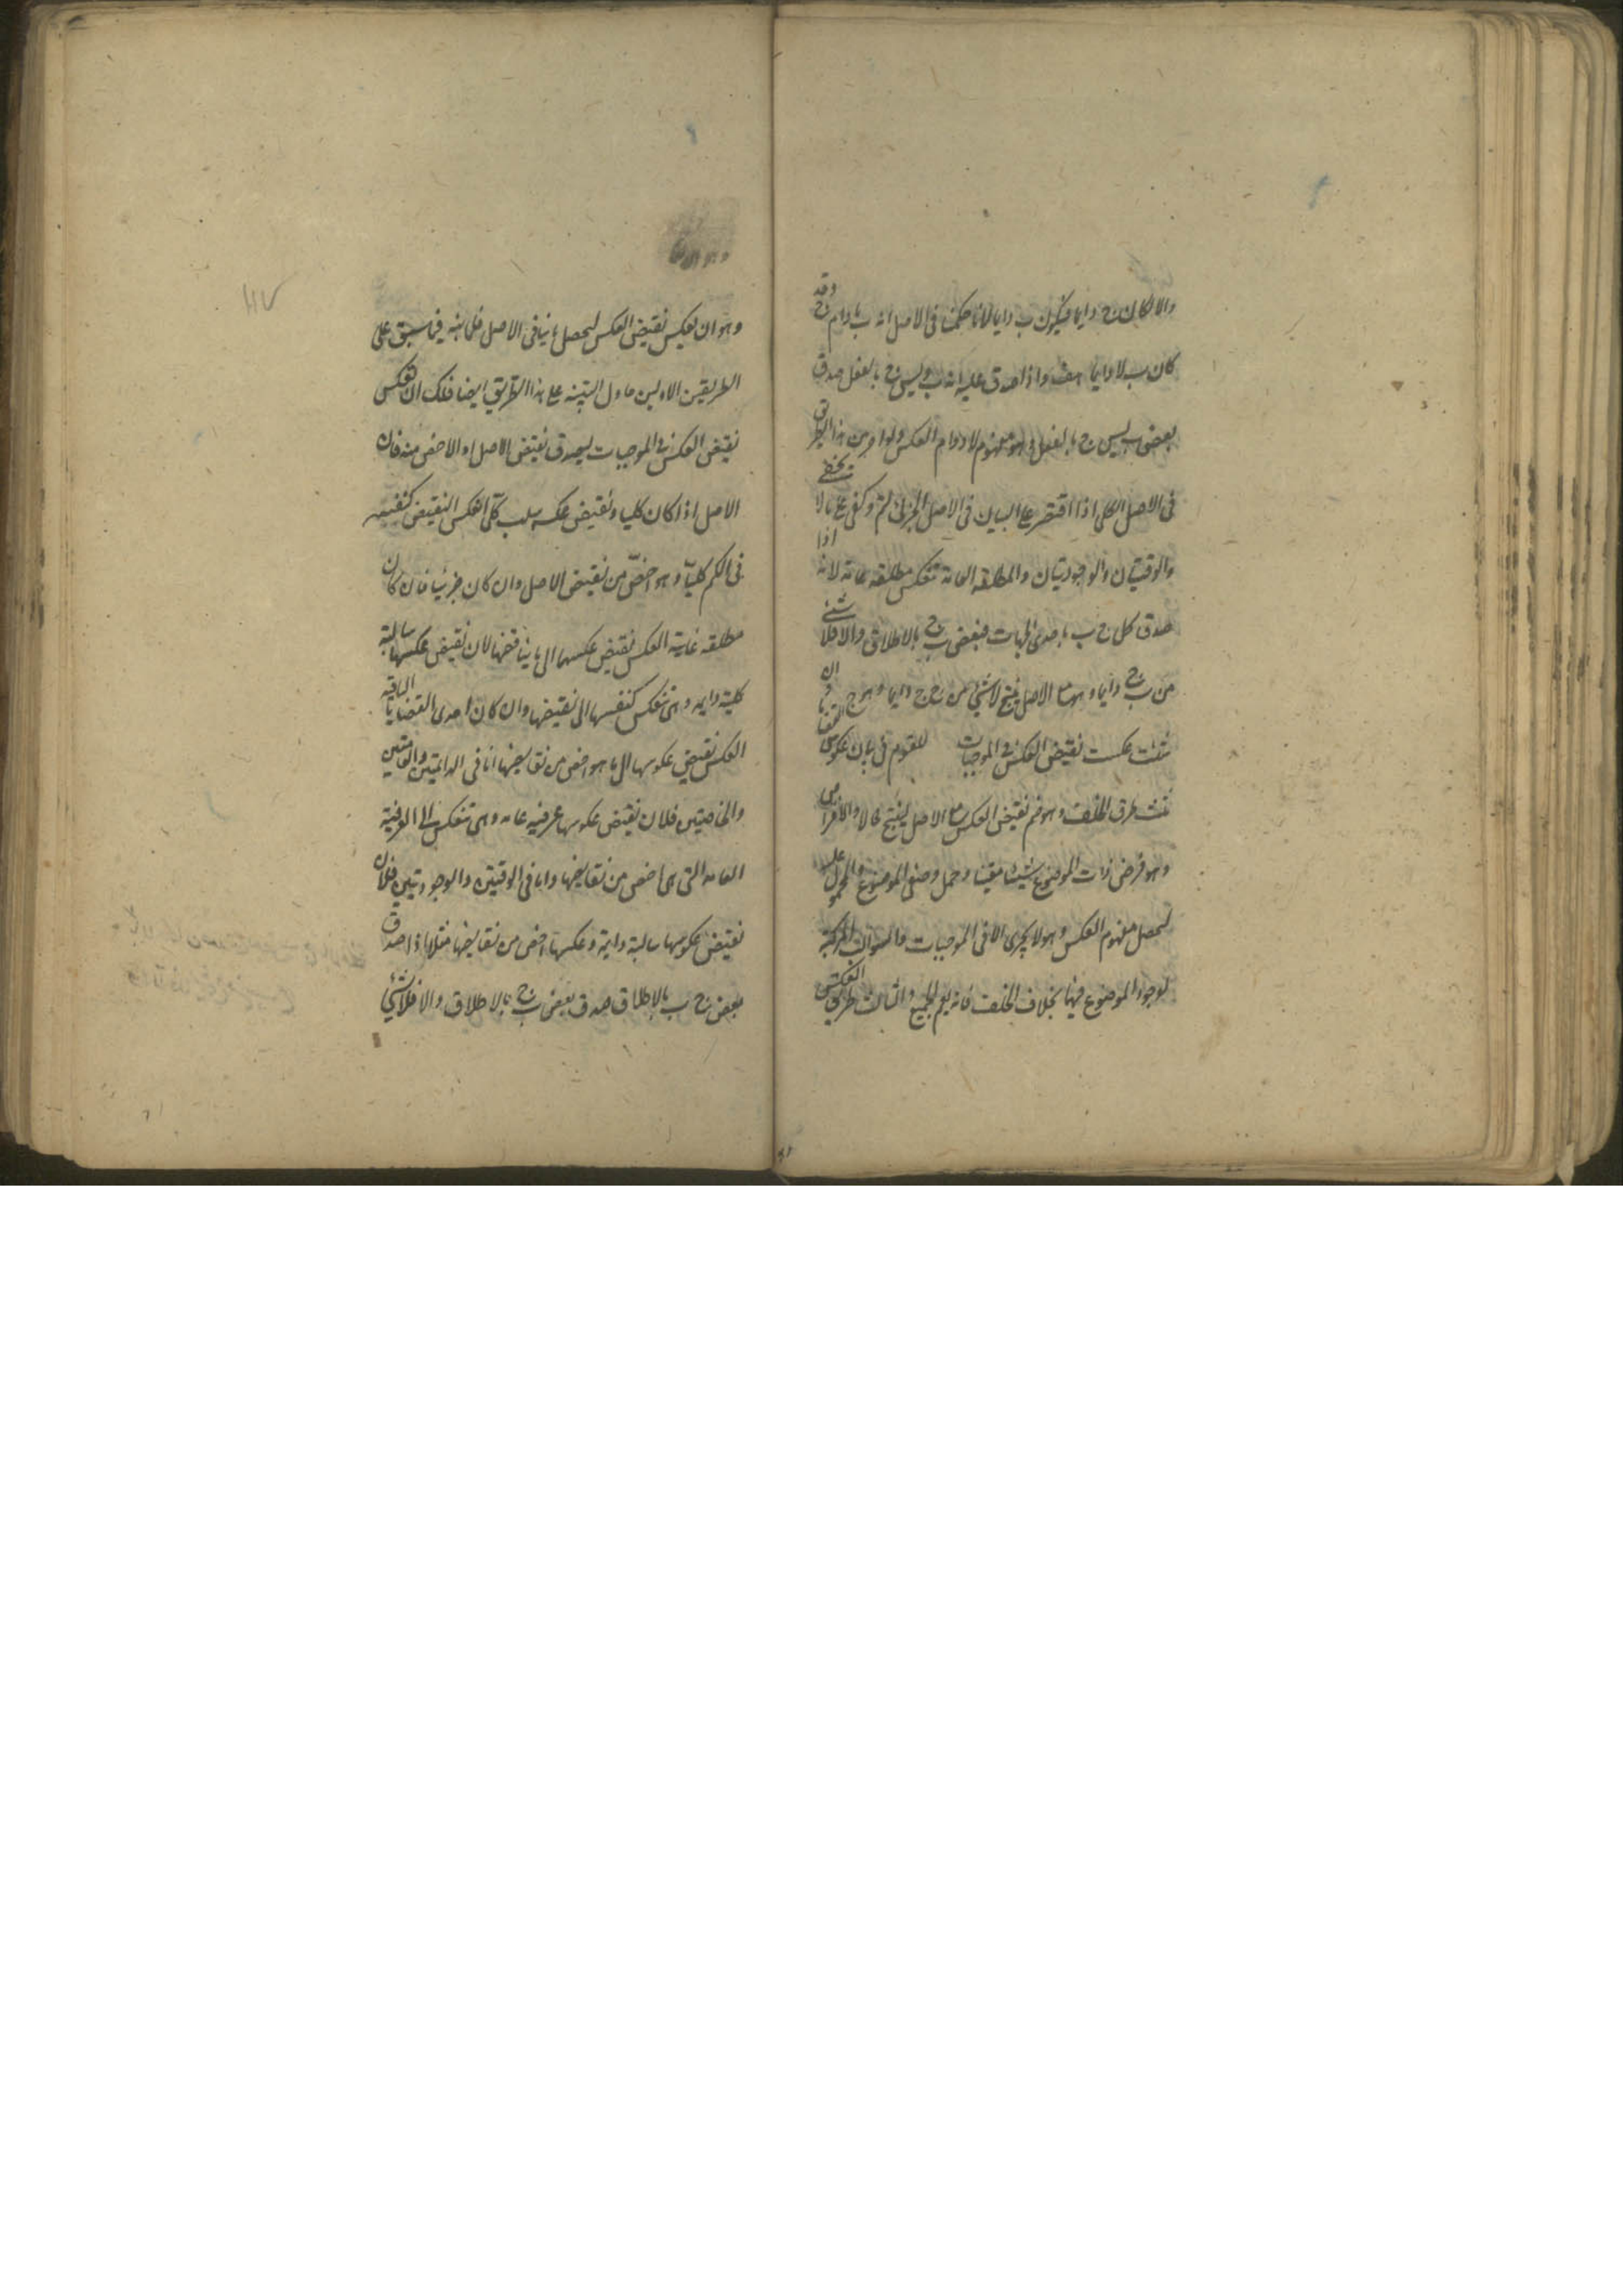 والا لكان ج دايما فيكون ب دايما لانا حكمنا فى الاصل انه ب ما دام ج وقد
كان ب لا دايما هف واذا صدق عليه انه ب وليس ج بالفعل صدق
بعض ب ليس ج بالفعل وهو مفهوم لادوام العكس ولو اورد من هذا الطريق
فى الاصل الكلى اذا اقتصر على البيان فى الاصل الجزئى لتم وكفى على ما لا يخفى
والوقتيتان والوجوديتان والمطلقه العامة تنعكس مطلقه عامة لانه اذا
صدق كل ج ب باحدى الجهات فبعض ب ج بالاطلاق والا فلا شئ
من ب ج دايما وهو مع الاصل ينتج لا شئ من ج ج دايما وهو مح ان
شئت عكست نقيض العكس فى الموجبات للقوم فى بيان عكوس القضايا
ثلث طرق الخلف وهو ضم نقيض العكس مع الاصل لينتج محالا والافتراض
وهو فرض ذات الموضوع شيئا معينا وحمل وصفى الموضوع والمحمول عليه
ليحصل مفهوم العكس وهو لا يجرى الا فى الموجبات والسوالب المركبة
لوجود الموضوع فيها بخلاف الخلف فانه يعم الجميع والثالث طريق العكس
وهو ان يعكس نقيض العكس ليحصل ما ينافى الاصل فلما نبه فيما سبق على
الطريقين الاولين حاول التنبيه على هذا الطريق ايضا فلك ان تعكس
نقيض العكس فى الموجبات ليصدق نقيض الاصل او الاخص منه فان
الاصل اذا كان كليا ونقيض عكسه سلب كلى انعكس النقيض كنفسه
فى الكم كليا وهو اخص من نقيض الاصل وان كان جزئيا فان كان
مطلقه عامة انعكس نقيض عكسها الى ما يناقضها لان نقيض عكسها سالبة
كلية دايمه وهى تنعكس كنفسها الى نقيضها وان كان احدى القضايا الباقيه
انعكس نقيض عكوسها الى ما هو اخص من نقايضها اما فى الدائمتين والعامتين
والخاصتين فلان نقيض عكوسها عرفيه عامه وهى تنعكس الى العرفية
العامه التى هى اخص من نقايضها واما فى الوقتيتين والوجوديتين فلان
نقيض عكوسها سالبة دايمة وعكسها اخص من نقايضها مثلا اذا صدق
بعض ج ب بالاطلاق صدق بعض ب ج بالاطلاق والا فلا شئ